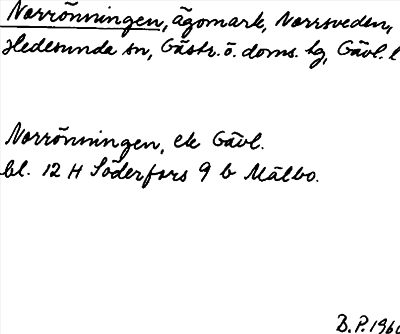 Norrönningen, ägomark, Norrsveden,
Hedesunda sn, Gästr. ö. doms. hg, Gävl. l
Norrönningen, ek Gävl.
bl. 12 H Söderfors 9 b Mälbo.
B.P. 196